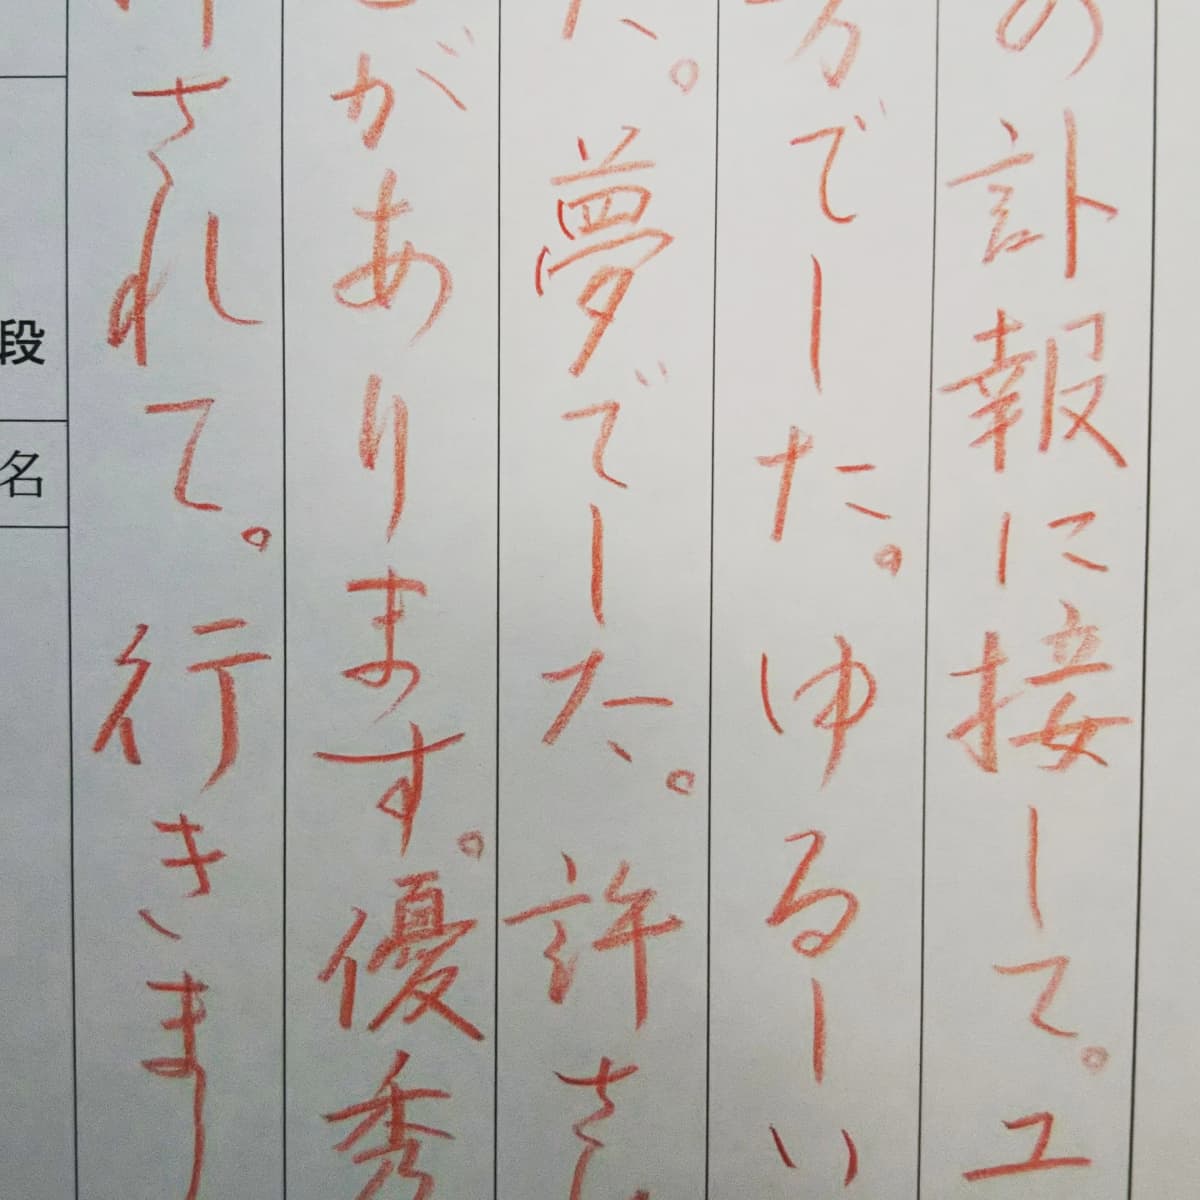 の訃報に接して。ユ
方でした。ゆるーい
た。夢でした。許さ
があります。優秀
許されて。行きまし
段
名